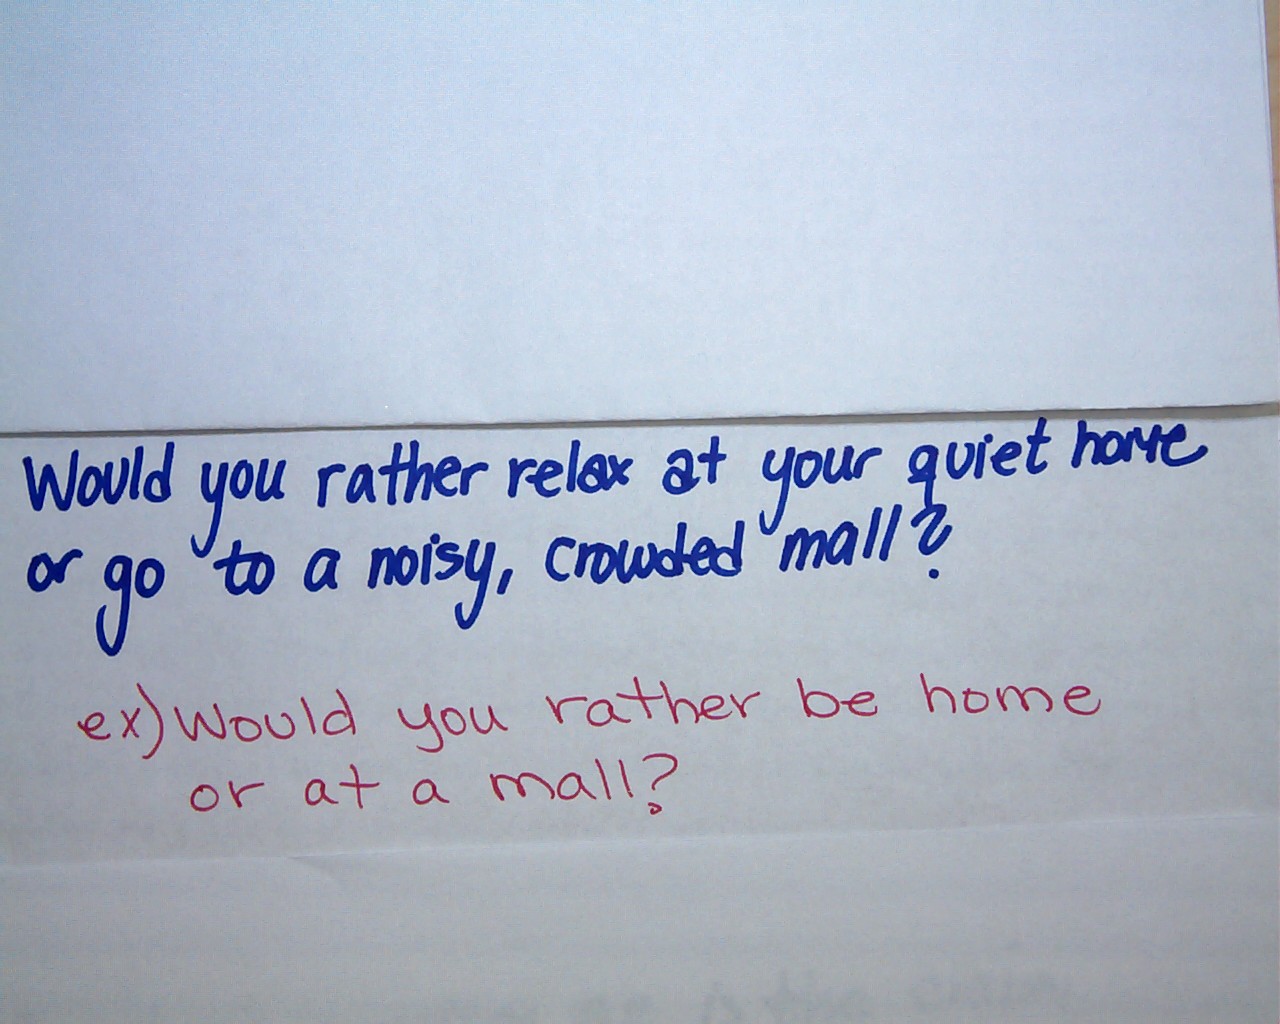 Would you rather relax at your quiet home
or go to a noisy, crowded mall?
ex) Would you rather be home
or at a mall?